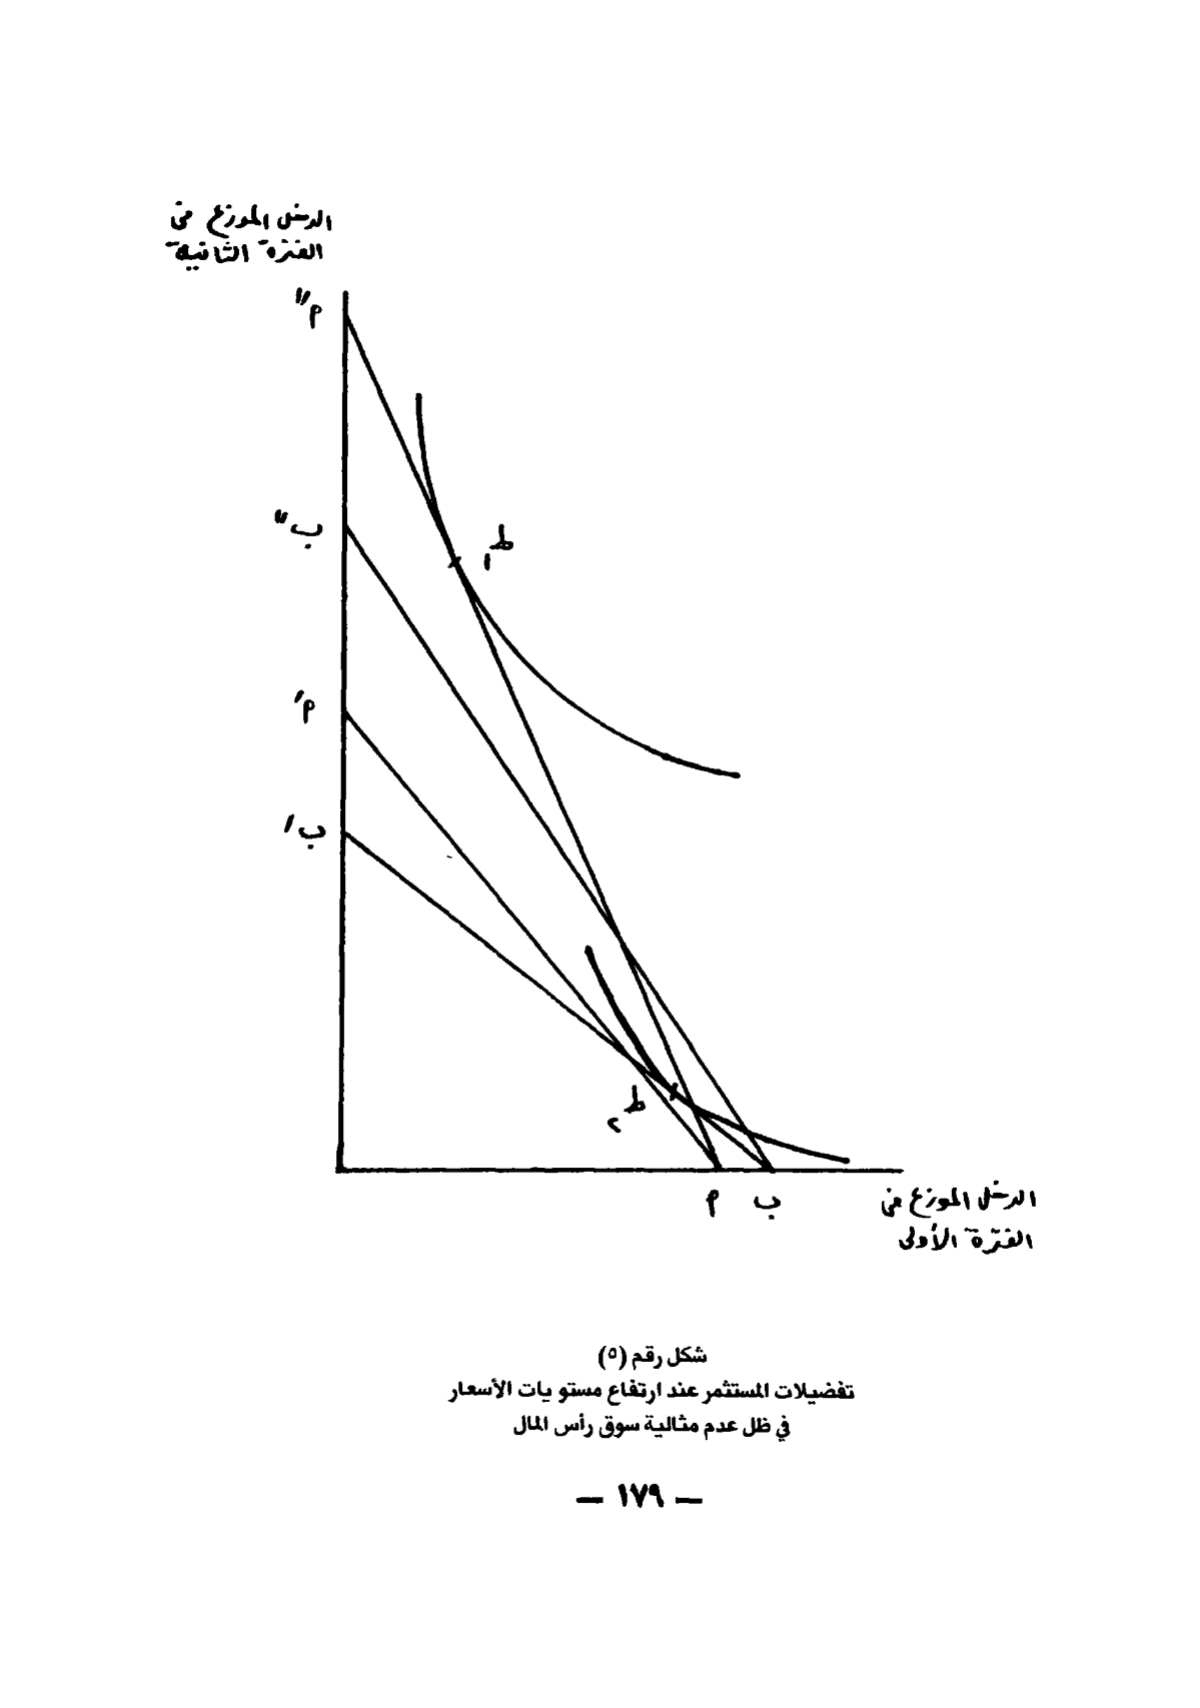 الدخل الموزع في
الفترة الثانية
م″
ب″
ط١
م′
ب′
ط٢
م
ب
الدخل الموزع في
الفترة الأولى
شكل رقم (٥)
تفضيلات المستثمر عند ارتفاع مستويات الأسعار
في ظل عدم مثالية سوق رأس المال
— ١٧٩ —